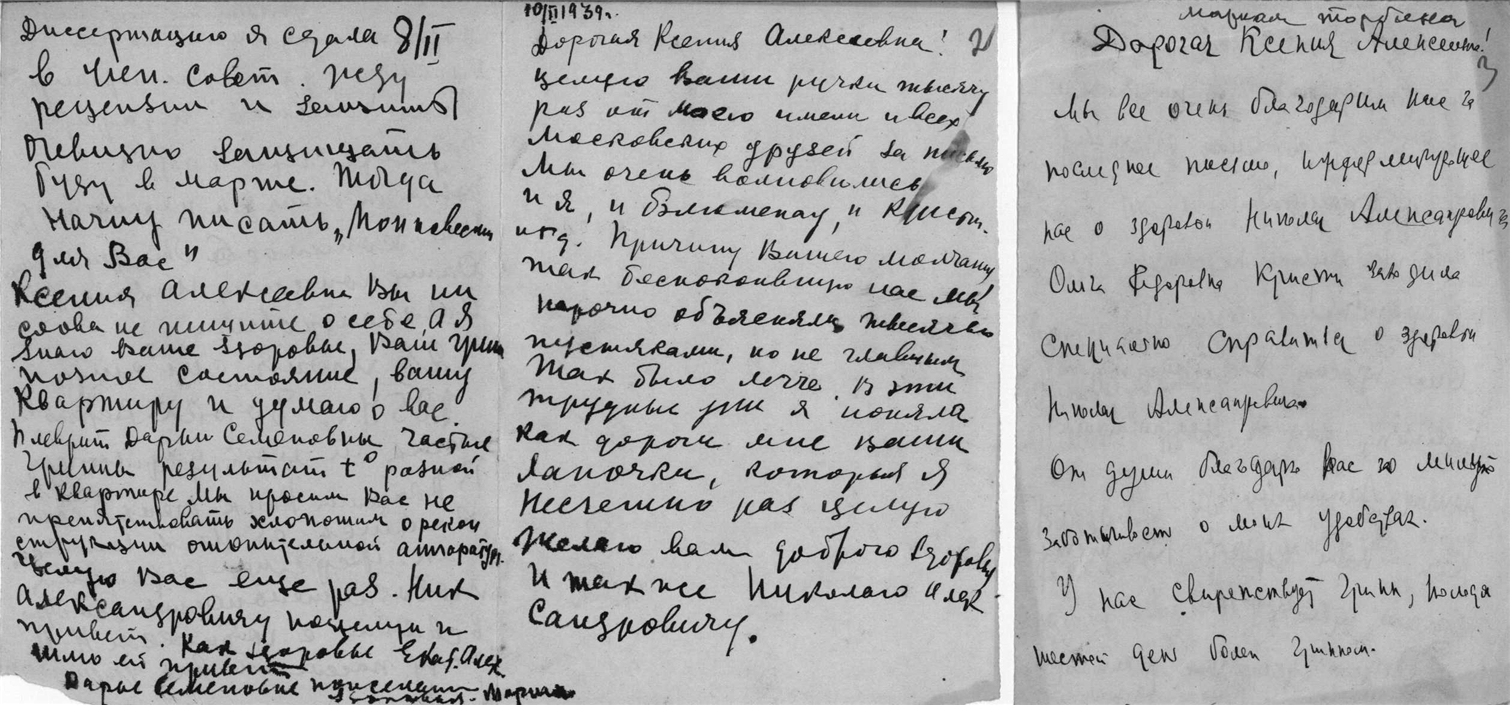 Диссертацию я сдала 8/II
в Учен. Совет. Жду
рецензии и защиты
Очевидно защищать
буду в марте. Тогда
начну писать „
для Вас"
Ксения Алексеевна Вы ни
слова не пишите о себе, а я
знаю Ваше здоровье, Ваш грип
позное состояние, вашу
квартиру и думаю о вас.
Плеврит Дарьи Семеновны частые
Гриппы результат t° разной
в квартире мы просим Вас не
препятствовать хлопотам о рекон
струкции отопительной аппаратуры.
Целую Вас еще раз. Ник
Александровичу поцелуи и
привет. Как здоровье Екат. Алек
шлю ей привет
Дарье Семеновне
Мариам
10/II 1939г.
Дорогая Ксения Алексеевна! 2
целую Ваши ручки тысячу
раз от моего имени и всех
московских друзей за письмо
Мы очень волновались
и я, и Блюменау, и Кристи
и т.д. Причину Вашего молчания
так беспокоившую нас мы
нарочно объясняли тысячью
пустяками, но не главным
Так было легче. В эти
трудные дни я поняла
как дороги мне ваши
лапочки, которые я
несчетно раз целую
Желаю вам доброго здоровья
И также Николаю Алек
сандровичу.
Мариам Торбина
Дорогая Ксения Алексеевна! 3
Мы все очень благодарим Вас за
последнее письмо,
нас о здоровьи Николая Александровича
Ольга Федоровна Кристи заходила
специально справиться о здоровьи
Николая Александровича.
От души благодарю Вас за милую
заботливость о моих удобствах.
У нас свирепствует грипп, Володя
шестой день болен гриппом.